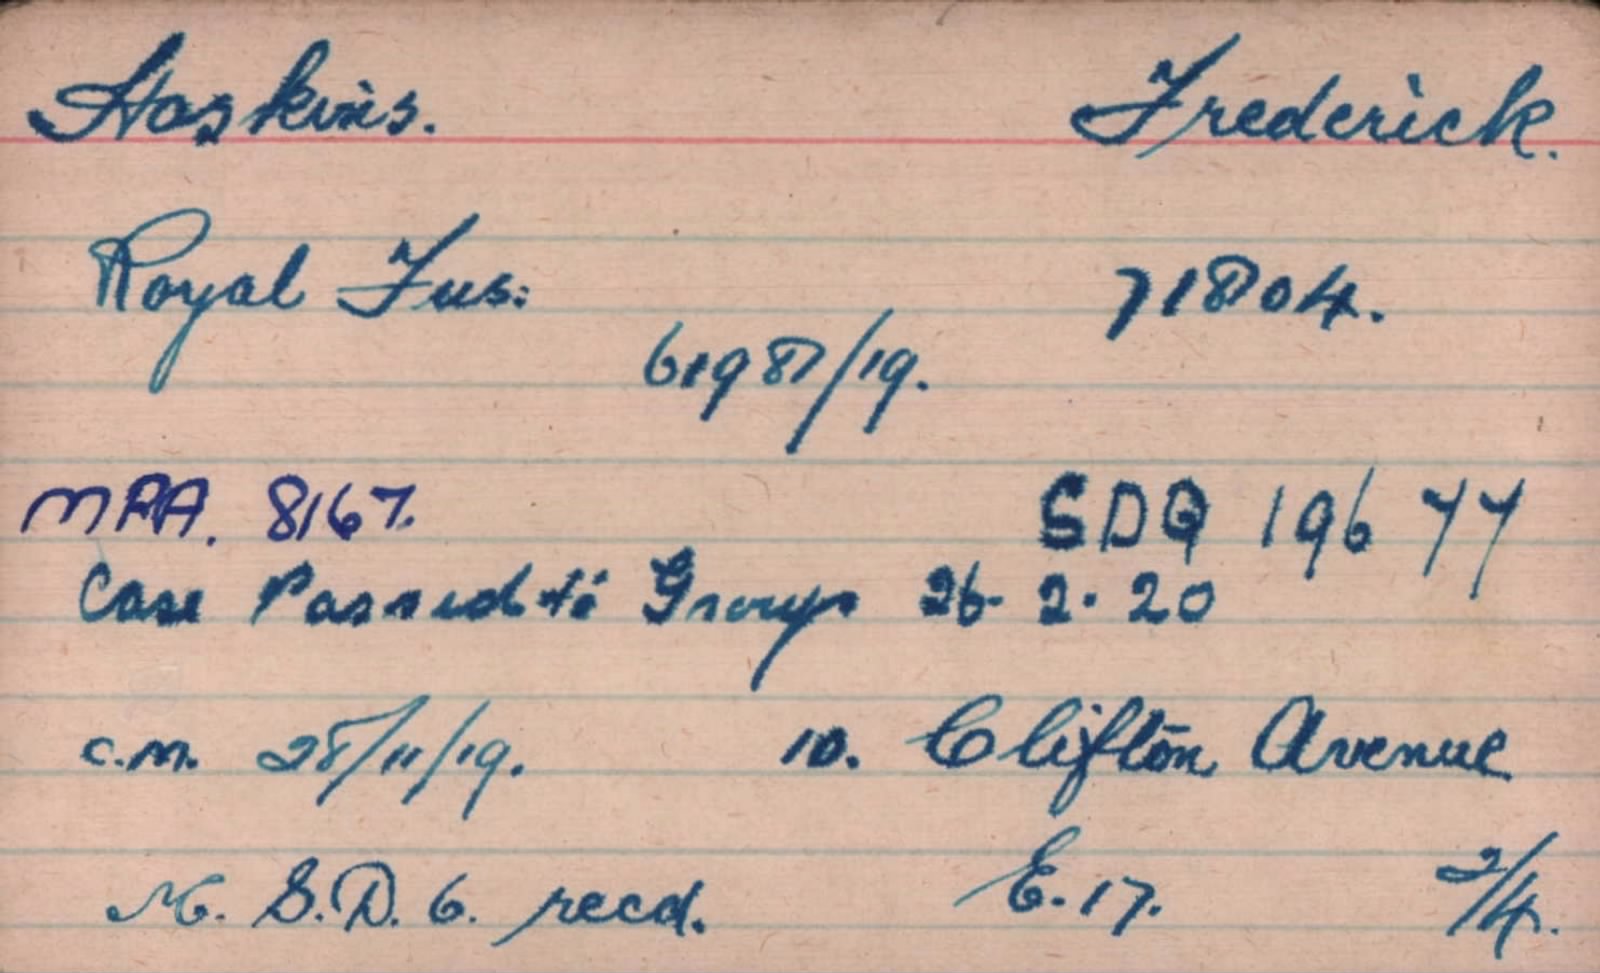 Hoskins. Frederick.
Royal Fus: 71804.
61987/19.
MPA. 8167. SDQ 19677
Case Passed to Group 26.2.20
C.M. 28/11/19. 10. Clifton Avenue
N. S.D. 6. recd. E.17. 2/4.